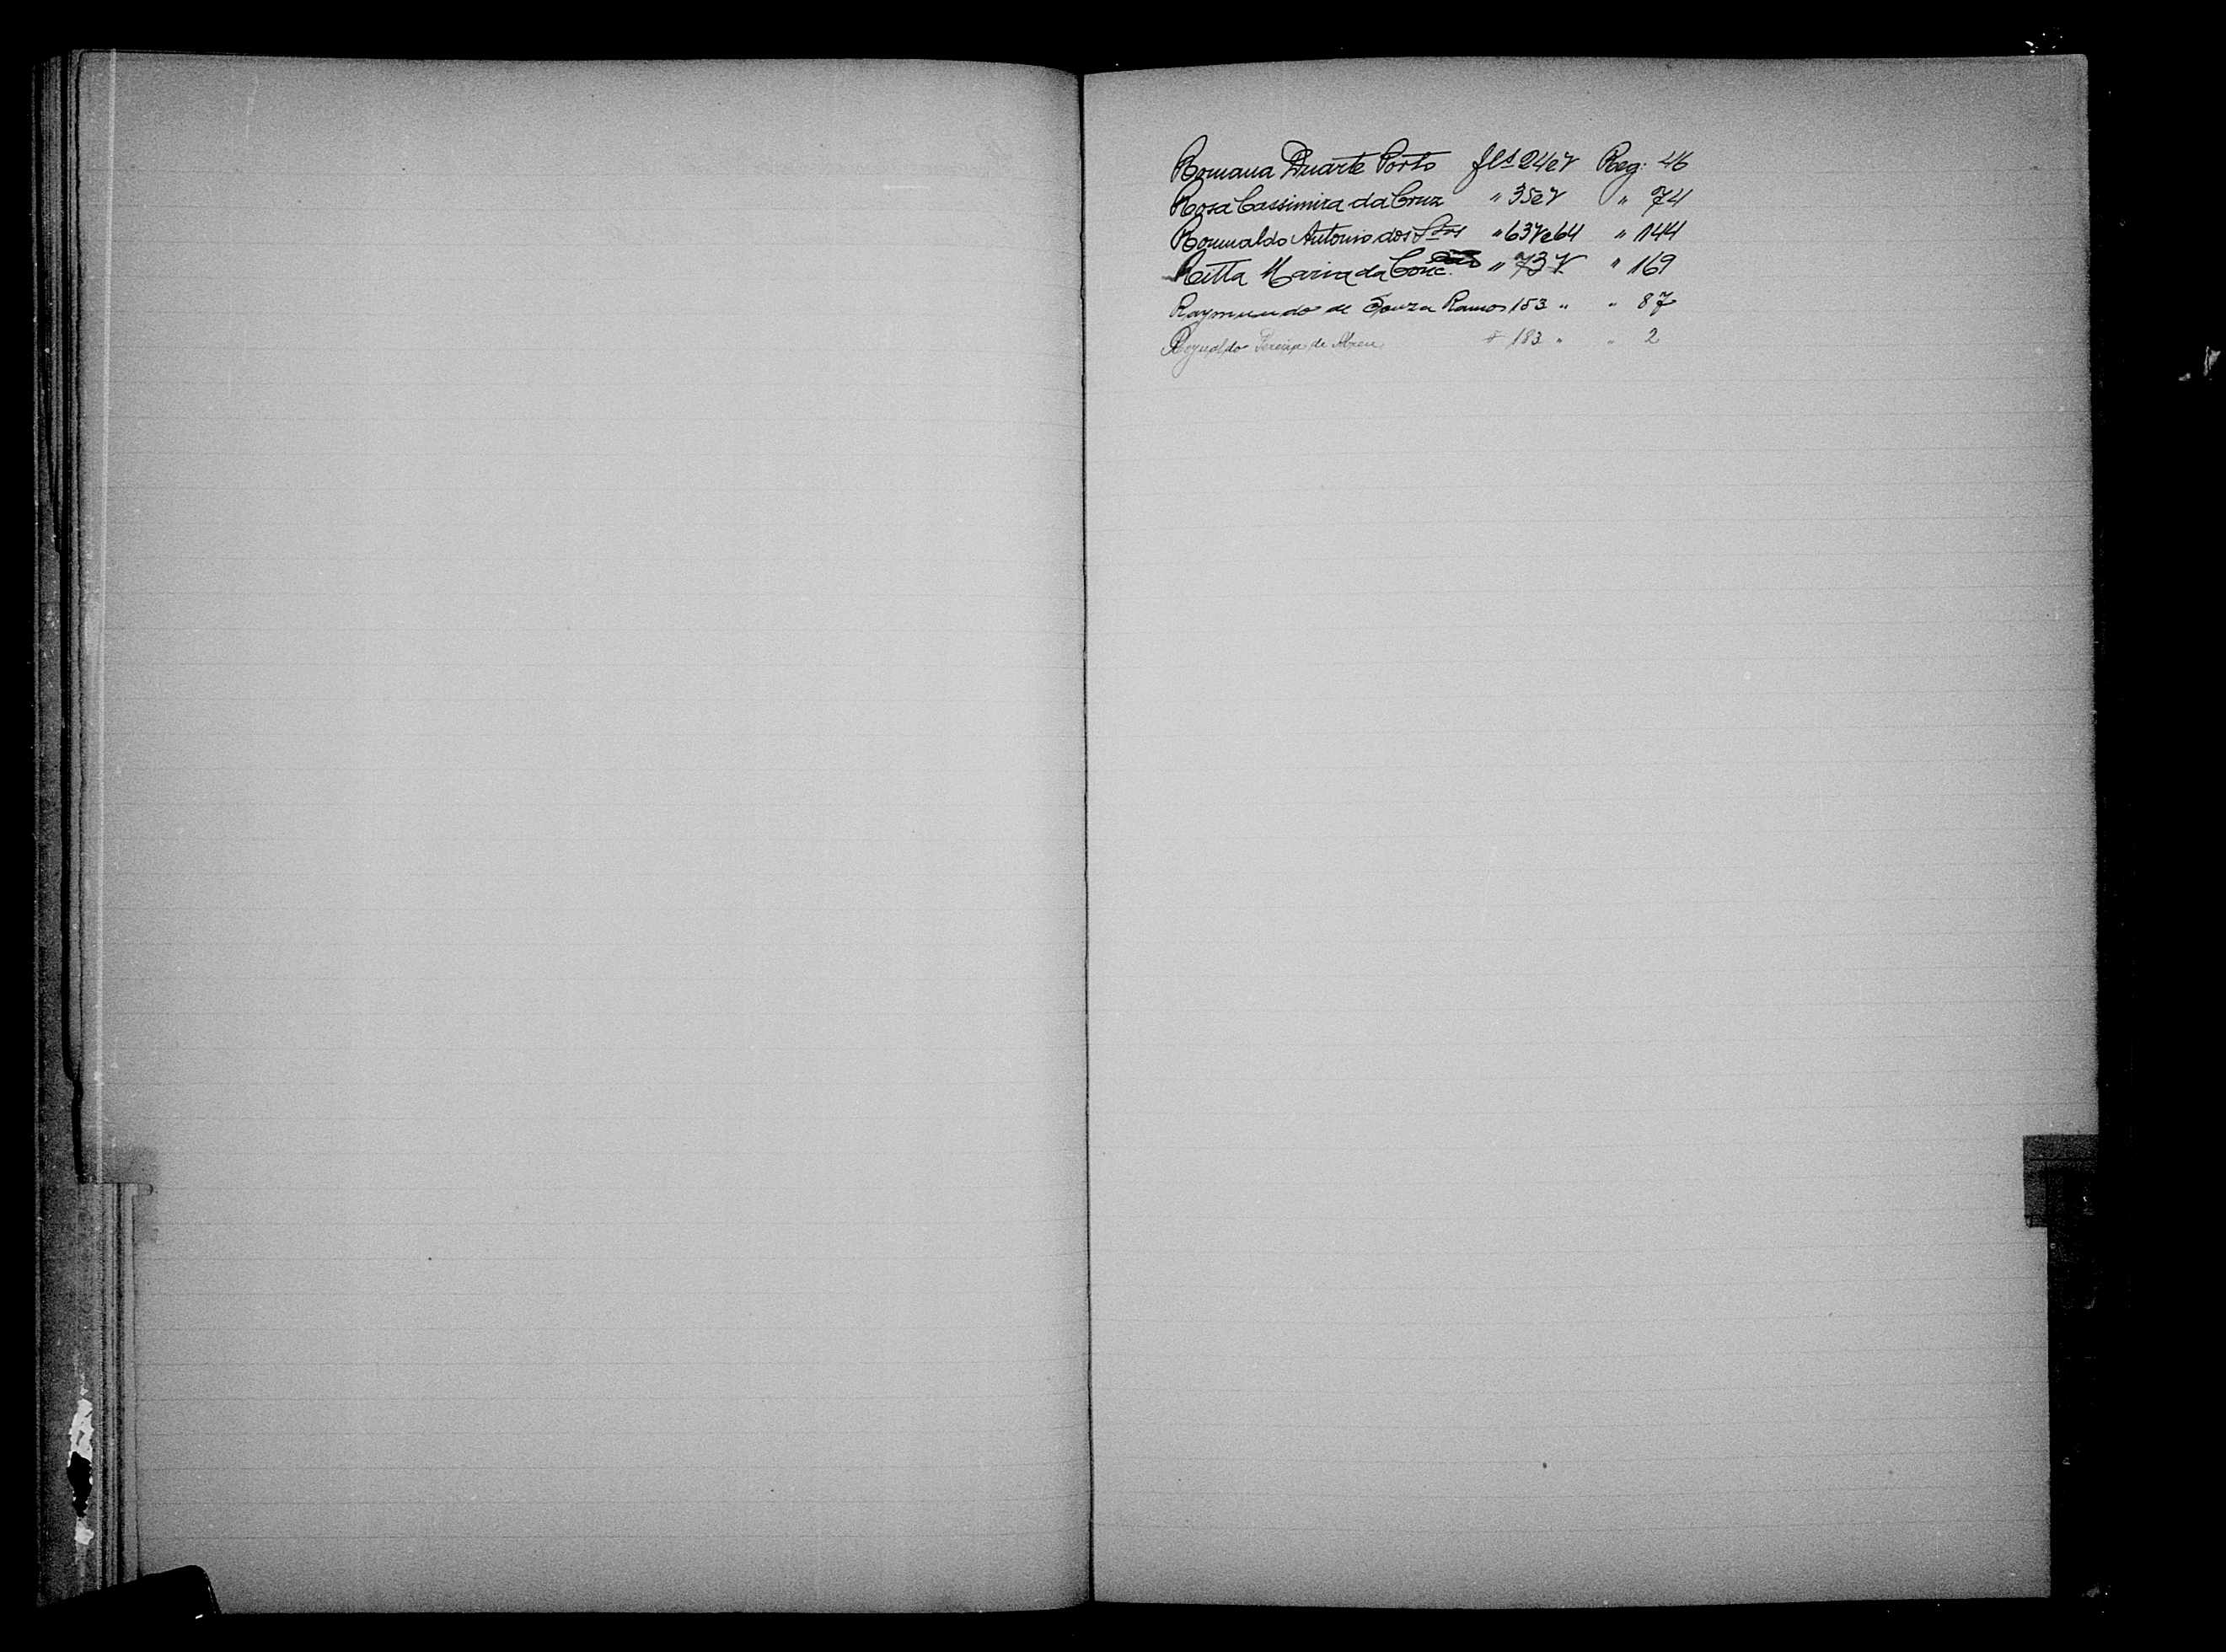 Romana Duarte Porto fls 24 e v Reg. 46
Rosa Cassimira da Cruz " 35 e v " 74
Romualdo Antonio dos Stos " 63 v e 64 " 144
Ritta Maria da Conc. " 73 v " 169
Raymundo de Souza Ramos 153 " " 87
Pereira de Abreu 183 " " 2